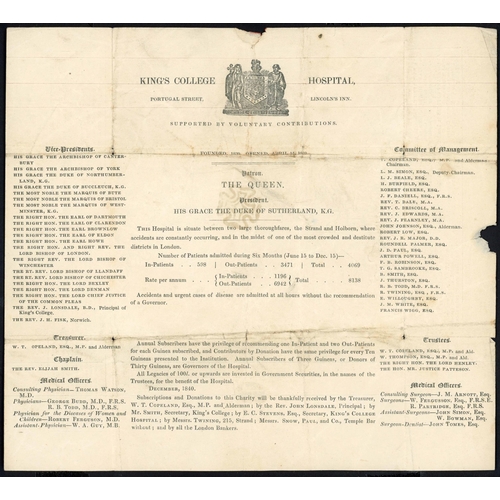 KING'S COLLEGE HOSPITAL,
PORTUGAL STREET, LINCOLN'S INN.
SUPPORTED BY VOLUNTARY CONTRIBUTIONS.
Vice-Presidents.
HIS GRACE THE ARCHBISHOP OF CANTER-
BURY
HIS GRACE THE ARCHBISHOP OF YORK
HIS GRACE THE DUKE OF NORTHUMBER-
LAND, K.G.
HIS GRACE THE DUKE OF BUCCLEUCH, K.G.
THE MOST NOBLE THE MARQUIS OF BUTE
THE MOST NOBLE THE MARQUIS OF BRISTOL
THE MOST NOBLE THE MARQUIS OF WEST-
MINSTER, K.G.
THE RIGHT HON. THE EARL OF DARTMOUTH
THE RIGHT HON. THE EARL OF CLARENDON
THE RIGHT HON. THE EARL OF ELDON
THE RIGHT HON. THE EARL BROWNLOW
THE RIGHT HON. THE EARL HOWE
THE RIGHT HON. AND RIGHT REV. THE
LORD BISHOP OF LONDON.
THE RIGHT REV. THE LORD BISHOP OF
WINCHESTER
THE RIGHT REV. THE LORD BISHOP OF
LORD BISHOP OF CHICHESTER
THE RT. REV. LORD BISHOP OF LLANDAFF
THE RIGHT HON. THE LORD BEXLEY
THE RIGHT HON. LORD DENMAN
THE RIGHT HON. THE LORD CHIEF JUSTICE
OF THE COMMON PLEAS
THE REV. J. LONSDALE, B.D., Principal of
King's College.
THE REV. J. H. FISK, Norwich.
Treasurer.
W. T. COPELAND, ESQ., M.P. and Alderman
Chaplain.
THE REV. ELIJAH SMITH.
Medical Officers.
Consulting Physician—THOMAS WATSON,
M.D.
Physicians—GEORGE BUDD, M.D., F.R.S.
R. B. TODD, M.D., F.R.S.
Physician for the Diseases of Women and
Children—ROBERT FERGUSON, M.D.
Assistant-Physician—W. A. GUY, M.B.
FOUNDED 1839. OPENED APRIL
Patron.
THE QUEEN.
President.
HIS GRACE THE DUKE OF SUTHERLAND, K.G.
This Hospital is situate between two large thoroughfares, the Strand and Holborn, where
accidents are constantly occurring, and in the midst of one of the most crowded and destitute
districts in London.
Number of Patients admitted during Six Months (June 15 to Dec. 15)—
In-Patients 598 Out-Patients 3471 Total 4069
Rate per annum In-Patients 1196
Out-Patients 6942 Total 8138
Accidents and urgent cases of disease are admitted at all hours without the recommendation
of a Governor.
Annual Subscribers have the privilege of recommending one In-Patient and two Out-Patients
for each Guinea subscribed, and Contributors by Donation have the same privilege for every Ten
Guineas presented to the Institution. Annual Subscribers of Three Guineas, or Donors of
Thirty Guineas, are Governors of the Hospital.
All Legacies of 100l. or upwards are invested in Government Securities, in the names of
the Trustees, for the benefit of the Hospital.
DECEMBER, 1840.
Subscriptions and Donations to this Charity will be thankfully received by the Treasurer,
W. T. COPELAND, ESQ., M.P. and Alderman; by the REV. JOHN LONSDALE, Principal; by
MR. SMITH, Secretary, King's College; by E. C. STEVENS, ESQ., Secretary, KING'S COLLEGE
HOSPITAL; by MESSRS. TWINING, 215, Strand; MESSRS. SNOW, PAUL, and Co., Temple Bar
without; and by all the London Bankers.
Committee of Management.
T. COPELAND, ESQ., M.P. and Alderman,
Chairman.
L. M. SIMON, ESQ., Deputy-Chairman.
L. J. BEALE, ESQ.
H. BURFIELD, ESQ.
ROBERT CHEERE, ESQ.
J. F. DANIELL, ESQ., F.R.S.
REV. T. DALE, M.A.
REV. C. BRISCHILL, M.A.
REV. J. EDWARDS, M.A.
REV. J. FEARNLEY, M.A.
JOHN JOHNSON, ESQ., Alderman.
ROBERT LOW, ESQ.
REV. J. R. MAJOR, D.D.
ROUNDELL PALMER, ESQ.
J. D. PAUL, ESQ.
ARTHUR POWELL, ESQ.
F. R. ROBINSON, ESQ.
T. G. SAMBROOKE, ESQ.
H. SMITH, ESQ.
J. THURSTON, ESQ.
R. B. TODD, M.D., F.R.S.
R. TWINING, ESQ., F.R.S.
R. WILLOUGHBY, ESQ.
L. B. WHITE, ESQ.
FRANCIS WIGG, ESQ.
Trustees.
W. T. COPELAND, ESQ., M.P. and Ald.
W. THOMPSON, ESQ., M.P. and Ald.
THE RIGHT HON. THE LORD HENLEY.
THE HON. MR. JUSTICE PATTESON.
Medical Officers.
Consulting Surgeon—J. M. ARNOTT, ESQ.
Surgeons—W. FERGUSSON, ESQ. F.R.S.E.
R. PARTRIDGE, ESQ. F.R.S.
Assistant-Surgeons—JOHN SIMON, ESQ.
W. BOWMAN, ESQ.
Surgeon-Dentist—JOHN TOMES, ESQ.